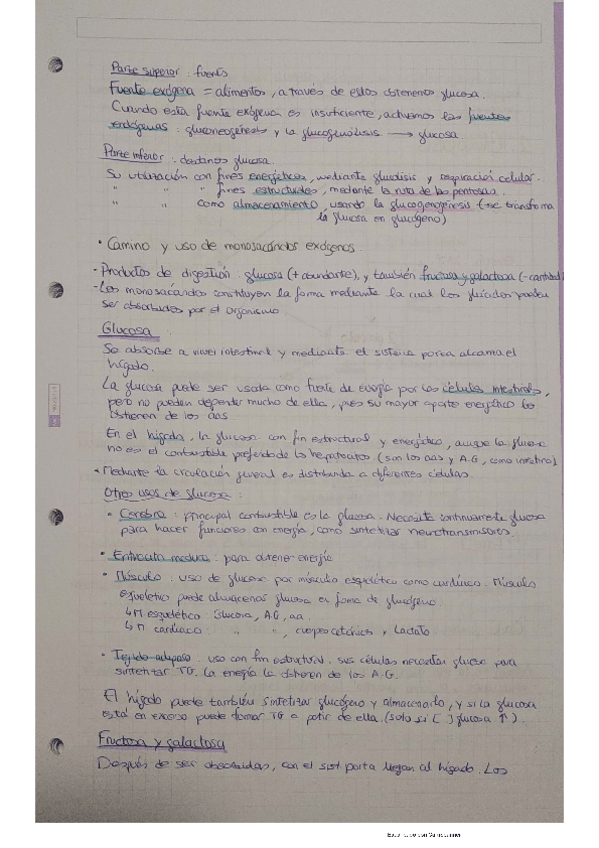 Parte superior : fuentes
Fuente exógena = alimentos, a través de ellos obtenemos glucosa.
Cuando esta fuente exógena es insuficiente, activamos las fuentes
endógenas : gluconeogénesis y la glucogenólisis → glucosa
Parte inferior : destinos glucosa.
Su utilización con fines energéticos, mediante glucólisis y respiración celular.
" " " fines estructurales, mediante la ruta de las pentosas.
" " como almacenamiento, usando la glucogenogénesis (me transforma
la glucosa en glucógeno)
• Camino y uso de monosacáridos exógenos.
- Productos de digestión : glucosa (+ abundante), y también fructosa y galactosa (- cantidad)
- Los monosacáridos constituyen la forma mediante la cual los glúcidos pueden
ser absorbidos por el organismo
Glucosa
Se absorbe a nivel intestinal y mediante el sistema porta alcanza el
hígado.
La glucosa puede ser usada como fuente de energía por las células intestinales,
pero no pueden depender mucho de ella, pues su mayor aporte energético lo
obtienen de los aas
En el hígado, la glucosa con fin estructural y energético, aunque la glucosa
no es el combustible preferido de los hepatocitos (son los aas y A.G, como intestino)
• Mediante la circulación general es distribuida a diferentes células.
Otros usos de glucosa :
• Cerebro : principal combustible es la glucosa. Necesita continuamente glucosa
para hacer funciones con energía, como sintetizar neurotransmisores.
• Entrocito madura : para obtener energía
• Músculo : uso de glucosa por músculo esquelético como cardíaco. Músculo
esquelético puede almacenar glucosa en forma de glucógeno.
↳ M. esquelético : glucosa, A.G, aa.
↳ M cardíaco : " " , cuerpos cetónicos y lactato
• Tejido adiposo : uso con fin estructural. sus células necesitan glucosa para
sintetizar TG. La energía la obtienen de los A.G.
El hígado puede también sintetizar glucógeno y almacenarlo, y si la glucosa
está en exceso puede formar TG a partir de ella. (solo si [ ] glucosa ↑).
Fructosa y galactosa
Después de ser absorbidas, con el sist porta llegan al hígado. Los